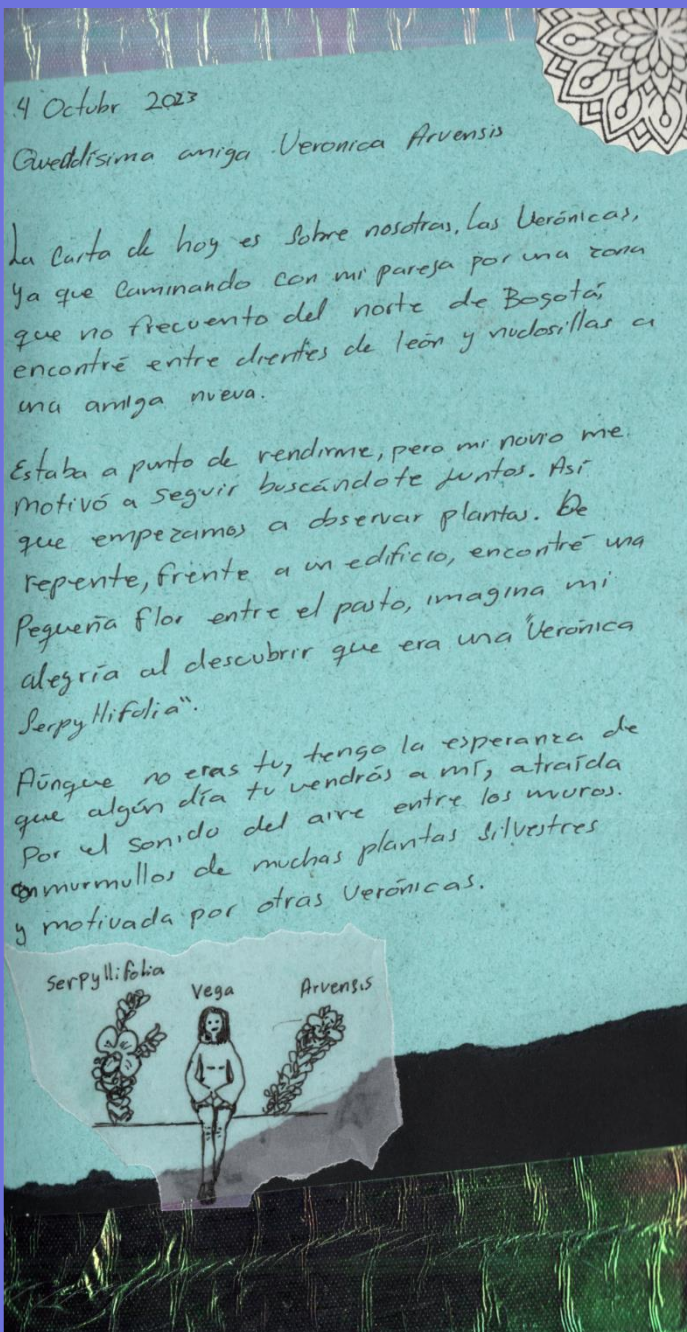 4 Octubr 2023
Queridísima amiga Veronica Arvensis
La Carta de hoy es sobre nosotras, las Verónicas,
ya que caminando con mi pareja por una zona
que no frecuento del norte de Bogotá,
encontré entre dientes de león y nudosillas a
una amiga nueva.
Estaba a punto de rendirme, pero mi novio me
motivó a seguir buscándote juntos. Así
que empezamos a observar plantas. De
repente, frente a un edificio, encontré una
Pequeña flor entre el pasto, imagina mi
alegría al descubrir que era una "Verónica
Serpyllifolia".
Aúnque no eras tu, tengo la esperanza de
que algún día tu vendrás a mí, atraída
Por el sonido del aire entre los muros.
murmullos de muchas plantas silvestres
y motivada por otras Verónicas.
Serpyllifolia
Vega
Arvensis